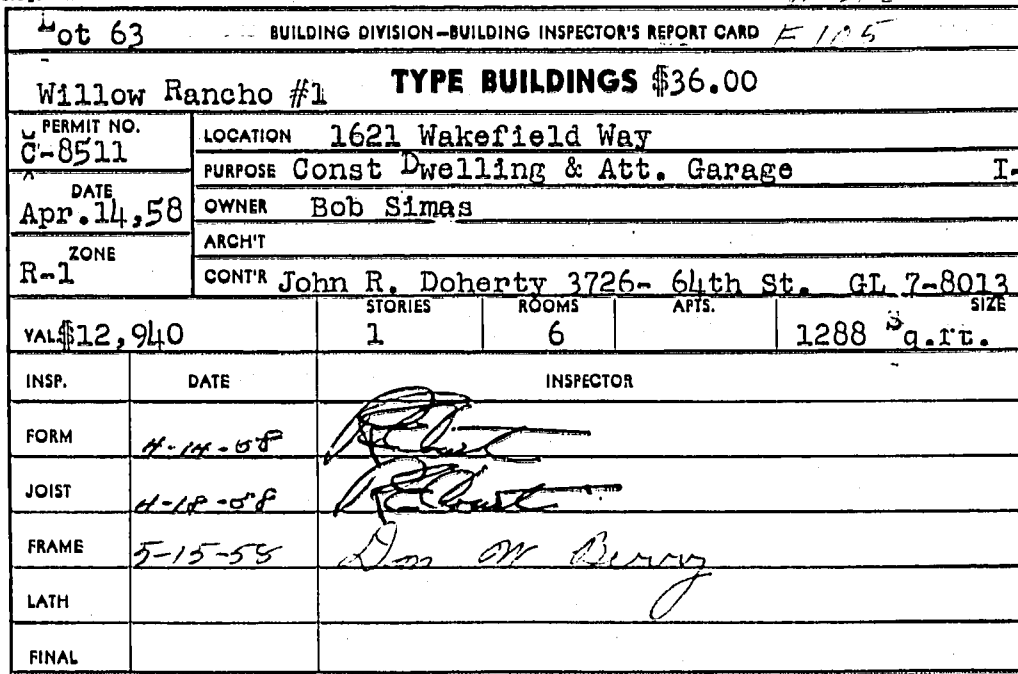 Lot 63 BUILDING DIVISION—BUILDING INSPECTOR'S REPORT CARD F 105
Willow Rancho #1 TYPE BUILDINGS $36.00
PERMIT NO. C-8511
LOCATION 1621 Wakefield Way
PURPOSE Const Dwelling & Att. Garage I-
DATE Apr.14,58
OWNER Bob Simas
ARCH'T
ZONE R-1
CONT'R John R. Doherty 3726- 64th St. GL 7-8013
VAL. $12,940 STORIES 1 ROOMS 6 APTS. SIZE 1288 Sq.ft.
INSP. DATE INSPECTOR
FORM 4-14-58
JOIST 4-18-58
FRAME 5-15-58 Don W Berry
LATH
FINAL